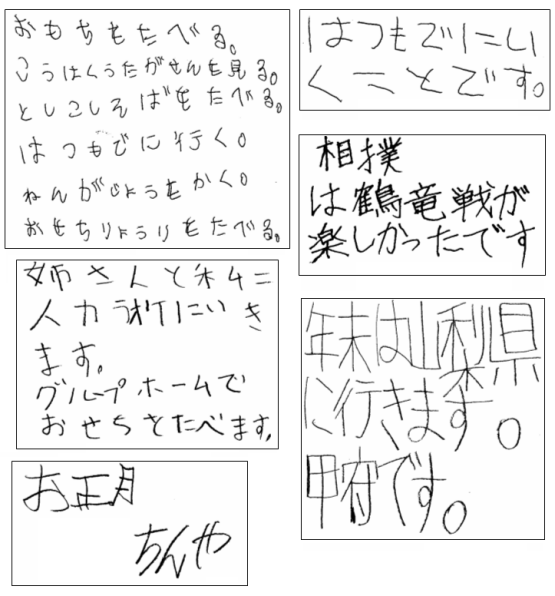 おもちもたべる。
こうはくうたがせんを見る。
としこしそばをたべる。
はつもでに行く。
ねんがじょうをかく。
おせちりょうりをたべる。
姉さんと私二
人カラオケにいき
ます。
グループホームで
おせちをたべます。
お正月
ちんや
はつもでにい
くことです。
相撲
は鶴竜戦が
楽しかったです
年末は山梨県
に行きます。
甲府です。